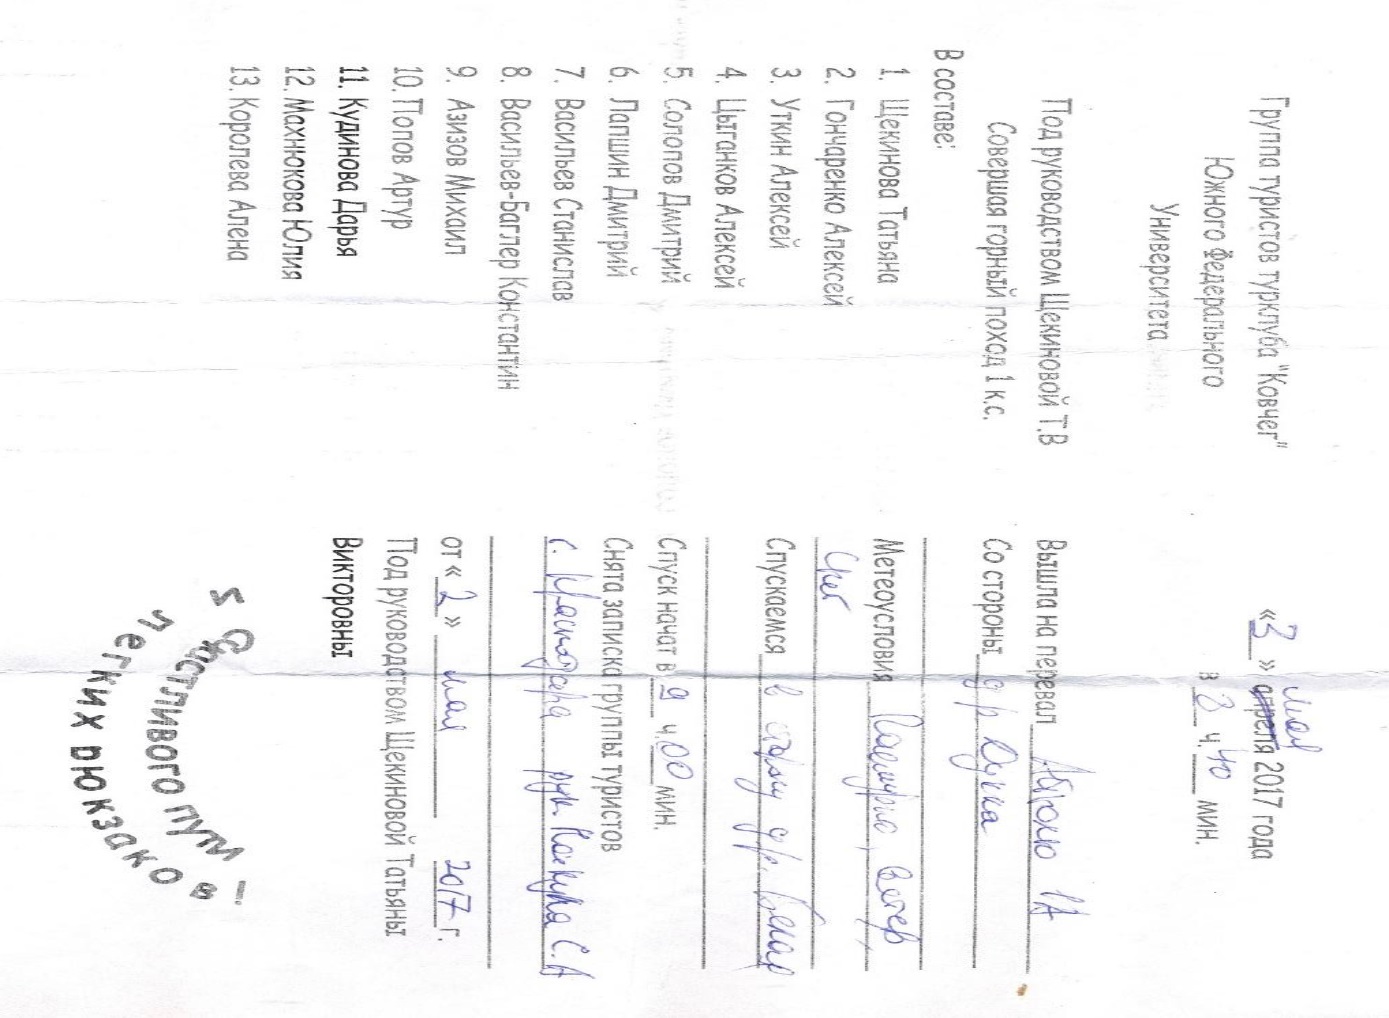 Группа туристов турклуба "Ковчег"
Южного Федерального
Университета
Под руководством Щекиновой Т.В
Совершая горный поход 1 к.с.
В составе:
1. Щекинова Татьяна
2. Гончаренко Алексей
3. Уткин Алексей
4. Цыганков Алексей
5. Солопов Дмитрий
6. Лапшин Дмитрий
7. Васильев Станислав
8. Васильев-Баглер Константин
9. Азизов Михаил
10. Попов Артур
11. Кудинова Дарья
12. Махнюкова Юлия
13. Королева Алена
мая
«3» апреля 2017 года
в 8 ч. 40 мин.
Вышла на перевал 1А
Со стороны д.р.
Метеоусловия Пасмурно, ветер
снег
Спускаемся в сторону д.р.
Спуск начат в 9 ч. 00 мин.
Снята записка группы туристов
г. Краснодара рук. С.А
от «2» мая 2017 г.
Под руководством Щекиновой Татьяны
Викторовны
Счастливого пути
легких рюкзаков